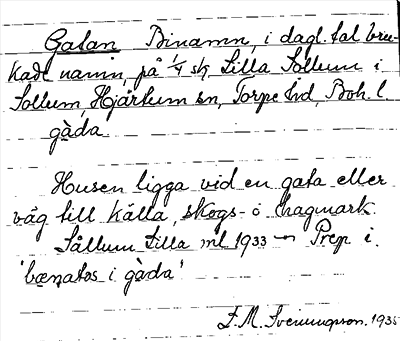 Gatan Binamn, i dagl. tal bru-
kadt namn, på 1/4 sk. Lilla Sollum i
Sollum, Hjärtum sn, Torpe hd, Boh. l.
gàda
Husen ligga vid en gata eller
väg till källa, skogs- o hagmark.
Sållum Lilla ml 1933 — Prep i.
'bænatos i gàda'
F. M. Sveningson. 1935